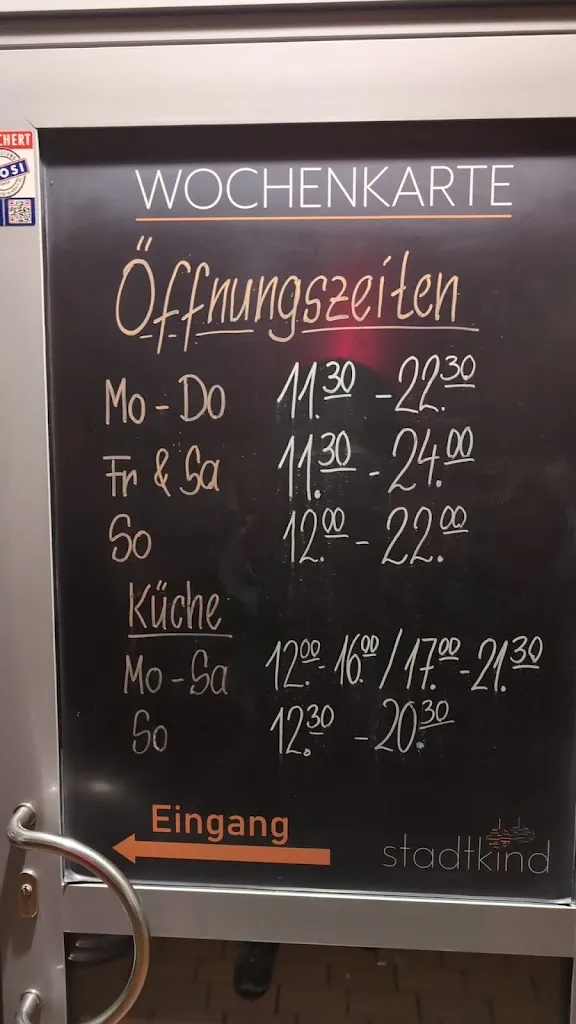 CHERT
OSI
WOCHENKARTE
Öffnungszeiten
Mo - Do 11.30 - 22.30
Fr & Sa 11.30 - 24.00
So 12.00 - 22.00
Küche
Mo - Sa 12.00 - 16.00 / 17.00 - 21.30
So 12.30 - 20.30
Eingang
stadtkind